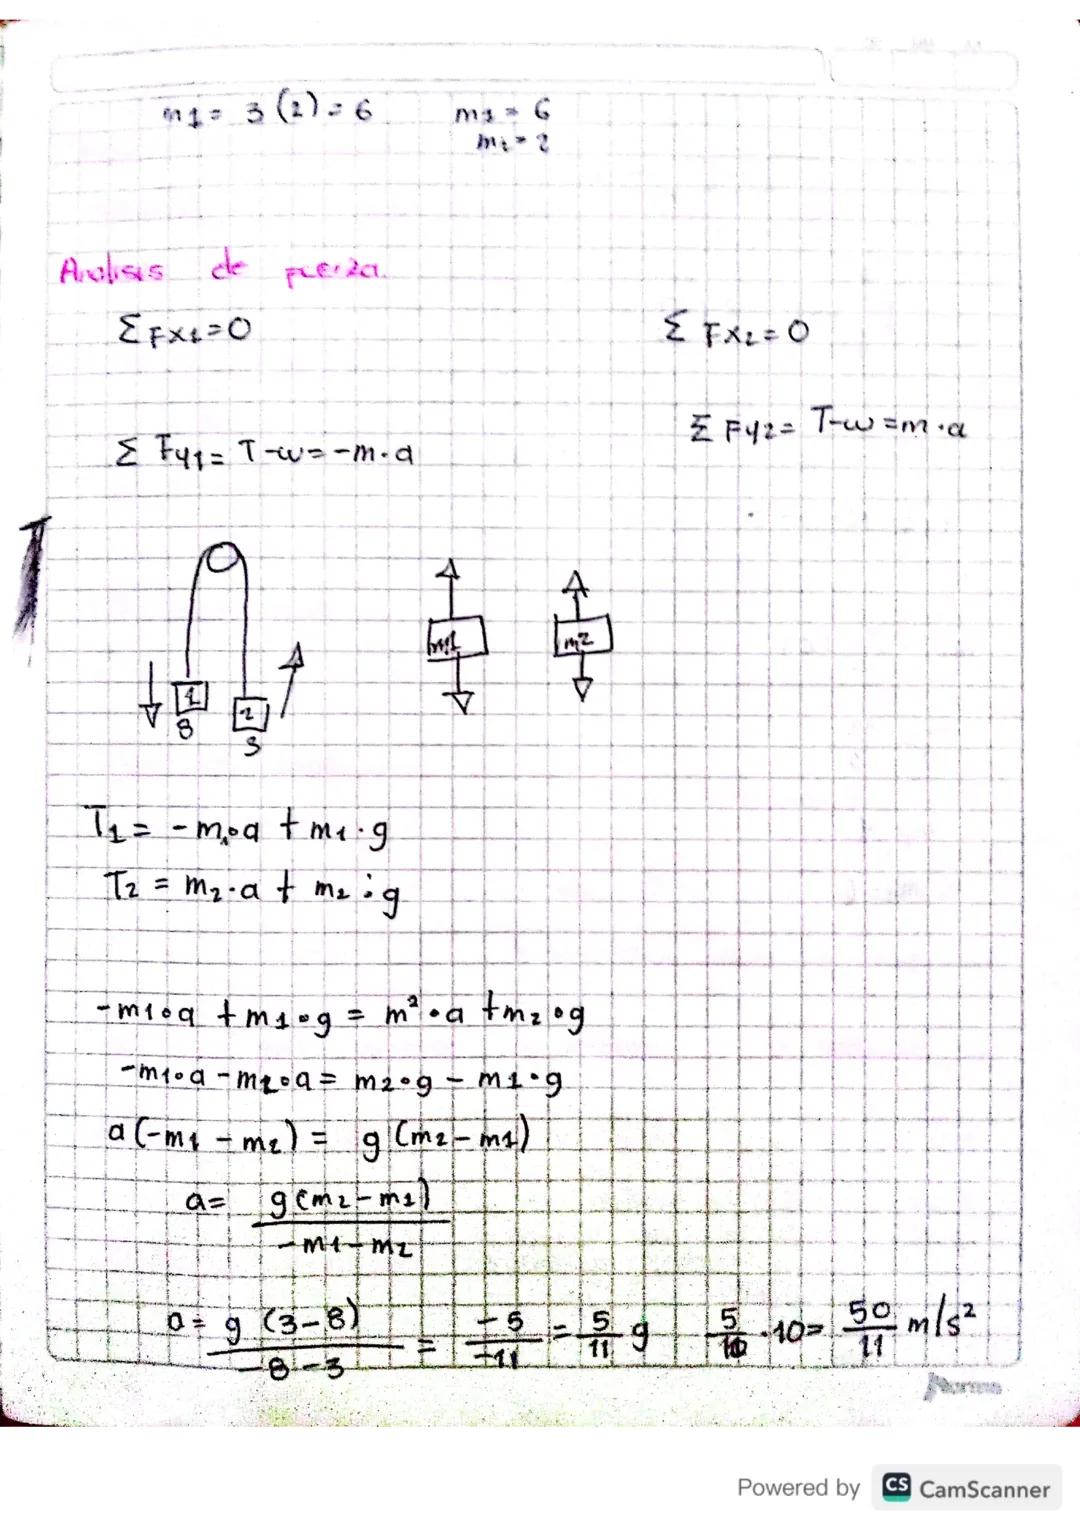 m1 = 3 (2) = 6 m1 = 6
m2 = 2
Analisis de fuerza.
Σ Fx1 = 0 Σ Fx2 = 0
Σ Fy2 = T-w = m·a
Σ Fy1 = T-w = -m·a
m1 m2
1 2
8 3
T1 = -m1·a + m1·g
T2 = m2·a + m2·g
-m1·a + m1·g = m²·a + m2·g
-m1·a - m2·a = m2·g - m1·g
a(-m1 - m2) = g(m2 - m1)
a = g(m2 - m1)
-m1 - m2
a = g (3-8) = -5 = 5 g 5 ·10 = 50 m/s²
-8-3 -11 11 11
Norma
Powered by CS CamScanner